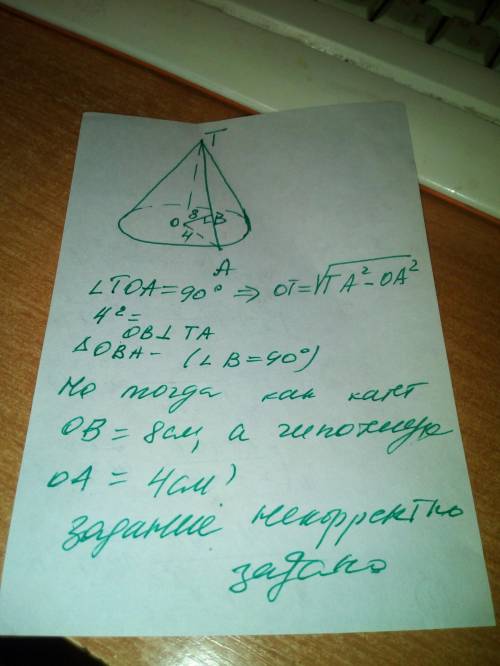 T
O 8 B
4
A
∠TOA=90° ⇒ OT=√TA²-OA²
4²=
OB⊥TA
△OBA- (∠B=90°)
Но тогда как катет
OB = 8см, а гипотенуза
OA = 4см?
задание некорректно
задано